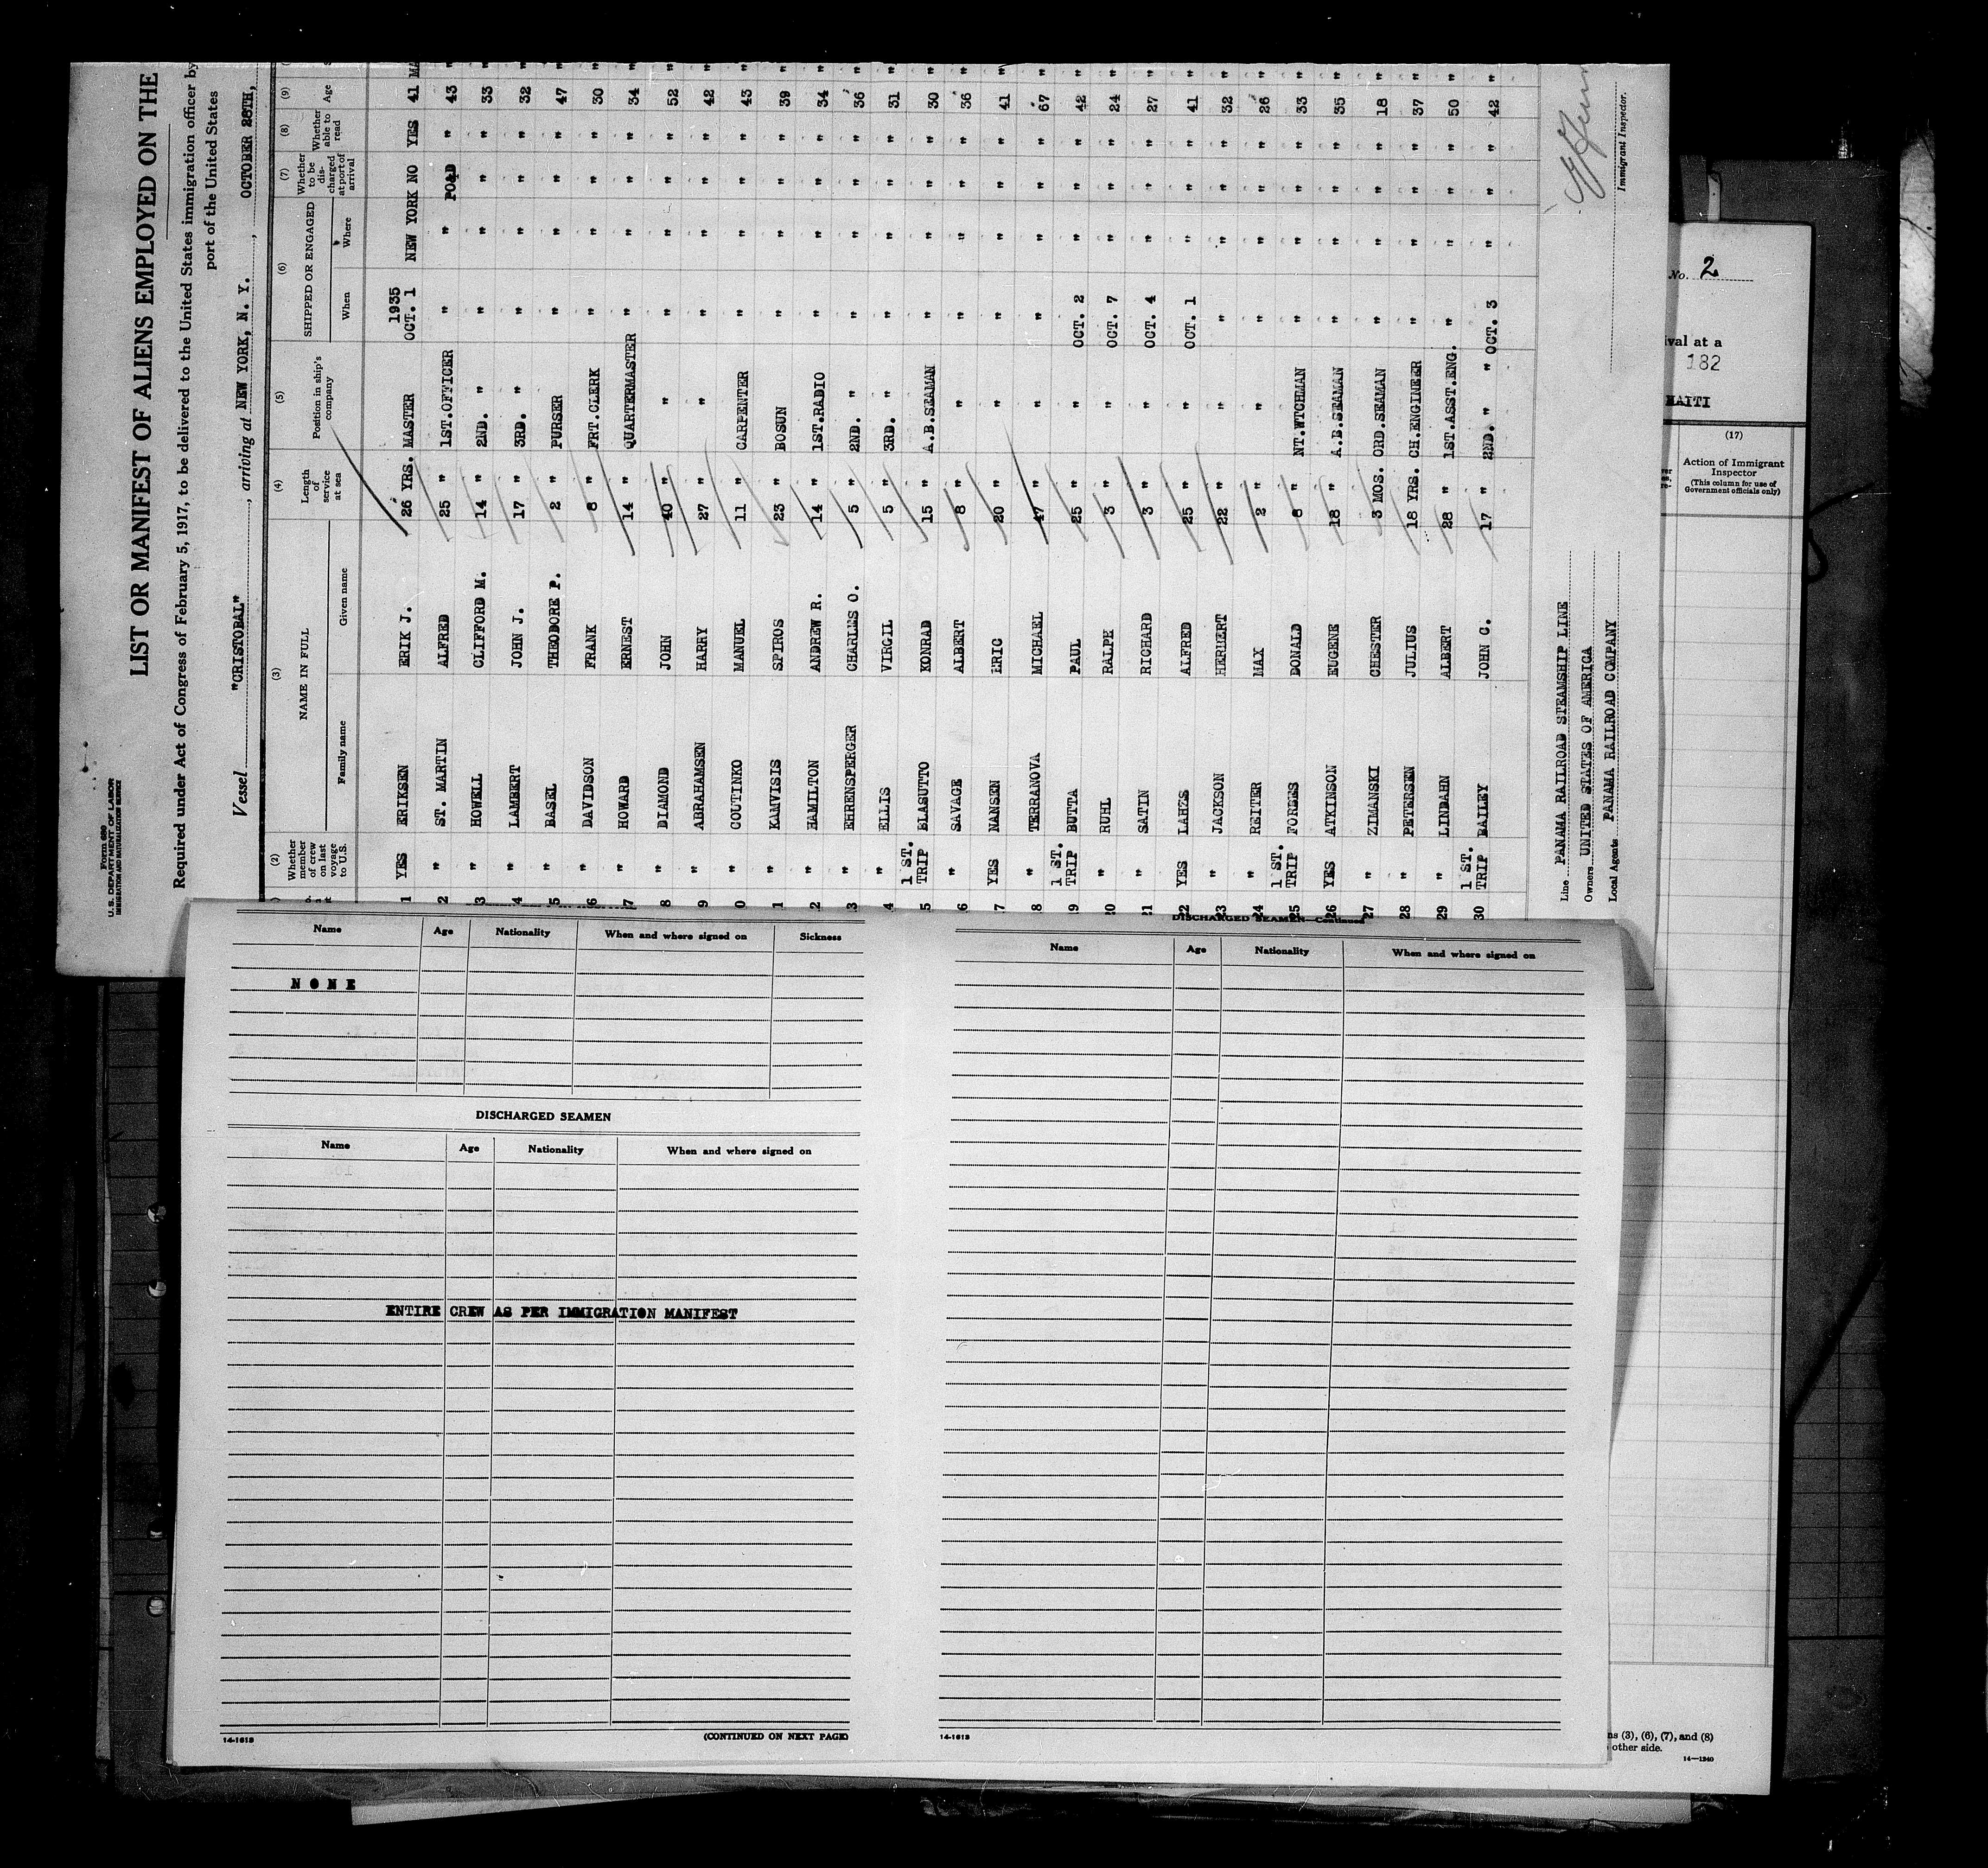 Form 680
U.S. DEPARTMENT OF LABOR
IMMIGRATION AND NATURALIZATION SERVICE
LIST OR MANIFEST OF ALIENS EMPLOYED ON THE
Required under Act of Congress of February 5, 1917, to be delivered to the United States immigration officer by
port of the United States
Vessel "CRISTOBAL", arriving at NEW YORK, N. Y., OCTOBER 28TH,
(2) (3) (4) (5) (6) (7) (8) (9)
Whether member of crew on last voyage to U.S. NAME IN FULL Family name Given name Length of service at sea Position in ship's company SHIPPED OR ENGAGED When Where Whether to be discharged at port of arrival Whether able to read Age
1935
1 YES ERIKSEN ERIK J. 26 YRS. MASTER OCT. 1 NEW YORK NO YES 41 MA
2 " ST. MARTIN ALFRED 25 " 1ST.OFFICER " " PO&D " 43 "
3 " HOWELL CLIFFORD M. 14 " 2ND. " " " " " 33 "
4 " LAMBERT JOHN J. 17 " 3RD. " " " " " 32 "
5 " BASEL THEODORE P. 2 " PURSER " " " " 47 "
6 " DAVIDSON FRANK 8 " FRT.CLERK " " " " 30 "
7 " HOWARD ERNEST 14 " QUARTERMASTER " " " " 34 "
8 " DIAMOND JOHN 40 " " " " " " 52 "
9 " ABRAHAMSEN HARRY 27 " " " " " " 42 "
0 " COUTINKO MANUEL 11 " CARPENTER " " " " 43 "
1 " KAMVISIS SPIROS 23 " BOSUN " " " " 39 "
2 " HAMILTON ANDREW R. 14 " 1ST.RADIO " " " " 34 "
3 " EHRENSPERGER CHARLES O. 5 " 2ND. " " " " " 36 "
4 " ELLIS VIRGIL 5 " 3RD. " " " " " 31 "
5 1 ST. TRIP BLASUTTO KONRAD 15 " A.B.SEAMAN " " " " 30 "
6 " SAVAGE ALBERT 8 " " " " " " 36 "
7 YES NANSEN ERIC 20 " " " " " " 41 "
8 " TERRANOVA MICHAEL 47 " " " " " " 67 "
19 1 ST. TRIP BUTTA PAUL 25 " " OCT. 2 " " " 42 "
20 " RUHL RALPE 3 " " OCT. 7 " " " 24 "
21 " SATIN RICHARD 3 " " OCT. 4 " " " 27 "
22 YES LAHZS ALFRED 25 " " OCT. 1 " " " 41 "
23 " JACKSON HERBERT 22 " " " " " " 32 "
24 " REITER MAX 2 " " " " " " 26 "
25 1 ST. TRIP FORBES DONALD 8 " NT.WTCHMAN " " " " 33 "
26 YES ATKINSON EUGENE 18 " A.B.SEAMAN " " " " 35 "
27 " ZIMANSKI CHESTER 3 MOS. ORD.SEAMAN " " " " 18 "
28 " PETERSEN JULIUS 18 YRS. CH.ENGINEER " " " " 37 "
29 " LINDAHN ALBERT 28 " 1ST.ASST.ENG. " " " " 50 "
30 1 ST. TRIP BAILEY JOHN C. 17 " 2ND. " " OCT. 3 " " " 42 "
Line PANAMA RAILROAD STEAMSHIP LINE
Owners UNITED STATES OF AMERICA
Local Agents PANAMA RAILROAD COMPANY
Immigrant Inspector.
No. 2
ival at a
182
HAITI
(17)
Action of Immigrant
Inspector
(This column for use of
Government officials only)
Name Age Nationality When and where signed on Sickness
NONE
DISCHARGED SEAMEN
Name Age Nationality When and where signed on
ENTIRE CREW AS PER IMMIGRATION MANIFEST
14-1613 (CONTINUED ON NEXT PAGE)
DISCHARGED SEAMEN—Continued
Name Age Nationality When and where signed on
14-1613
ns (3), (6), (7), and (8)
other side.
14—1240